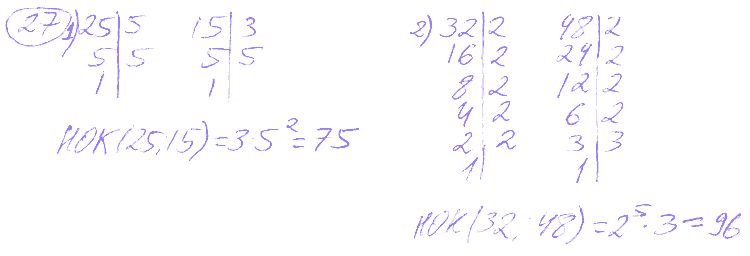 27 1) 25|5 15|3
5|5 5|5
1| 1|
НОК(25;15)=3·5²=75
2) 32|2 48|2
16|2 24|2
8|2 12|2
4|2 6|2
2|2 3|3
1| 1|
НОК(32; 48)=2⁵·3=96